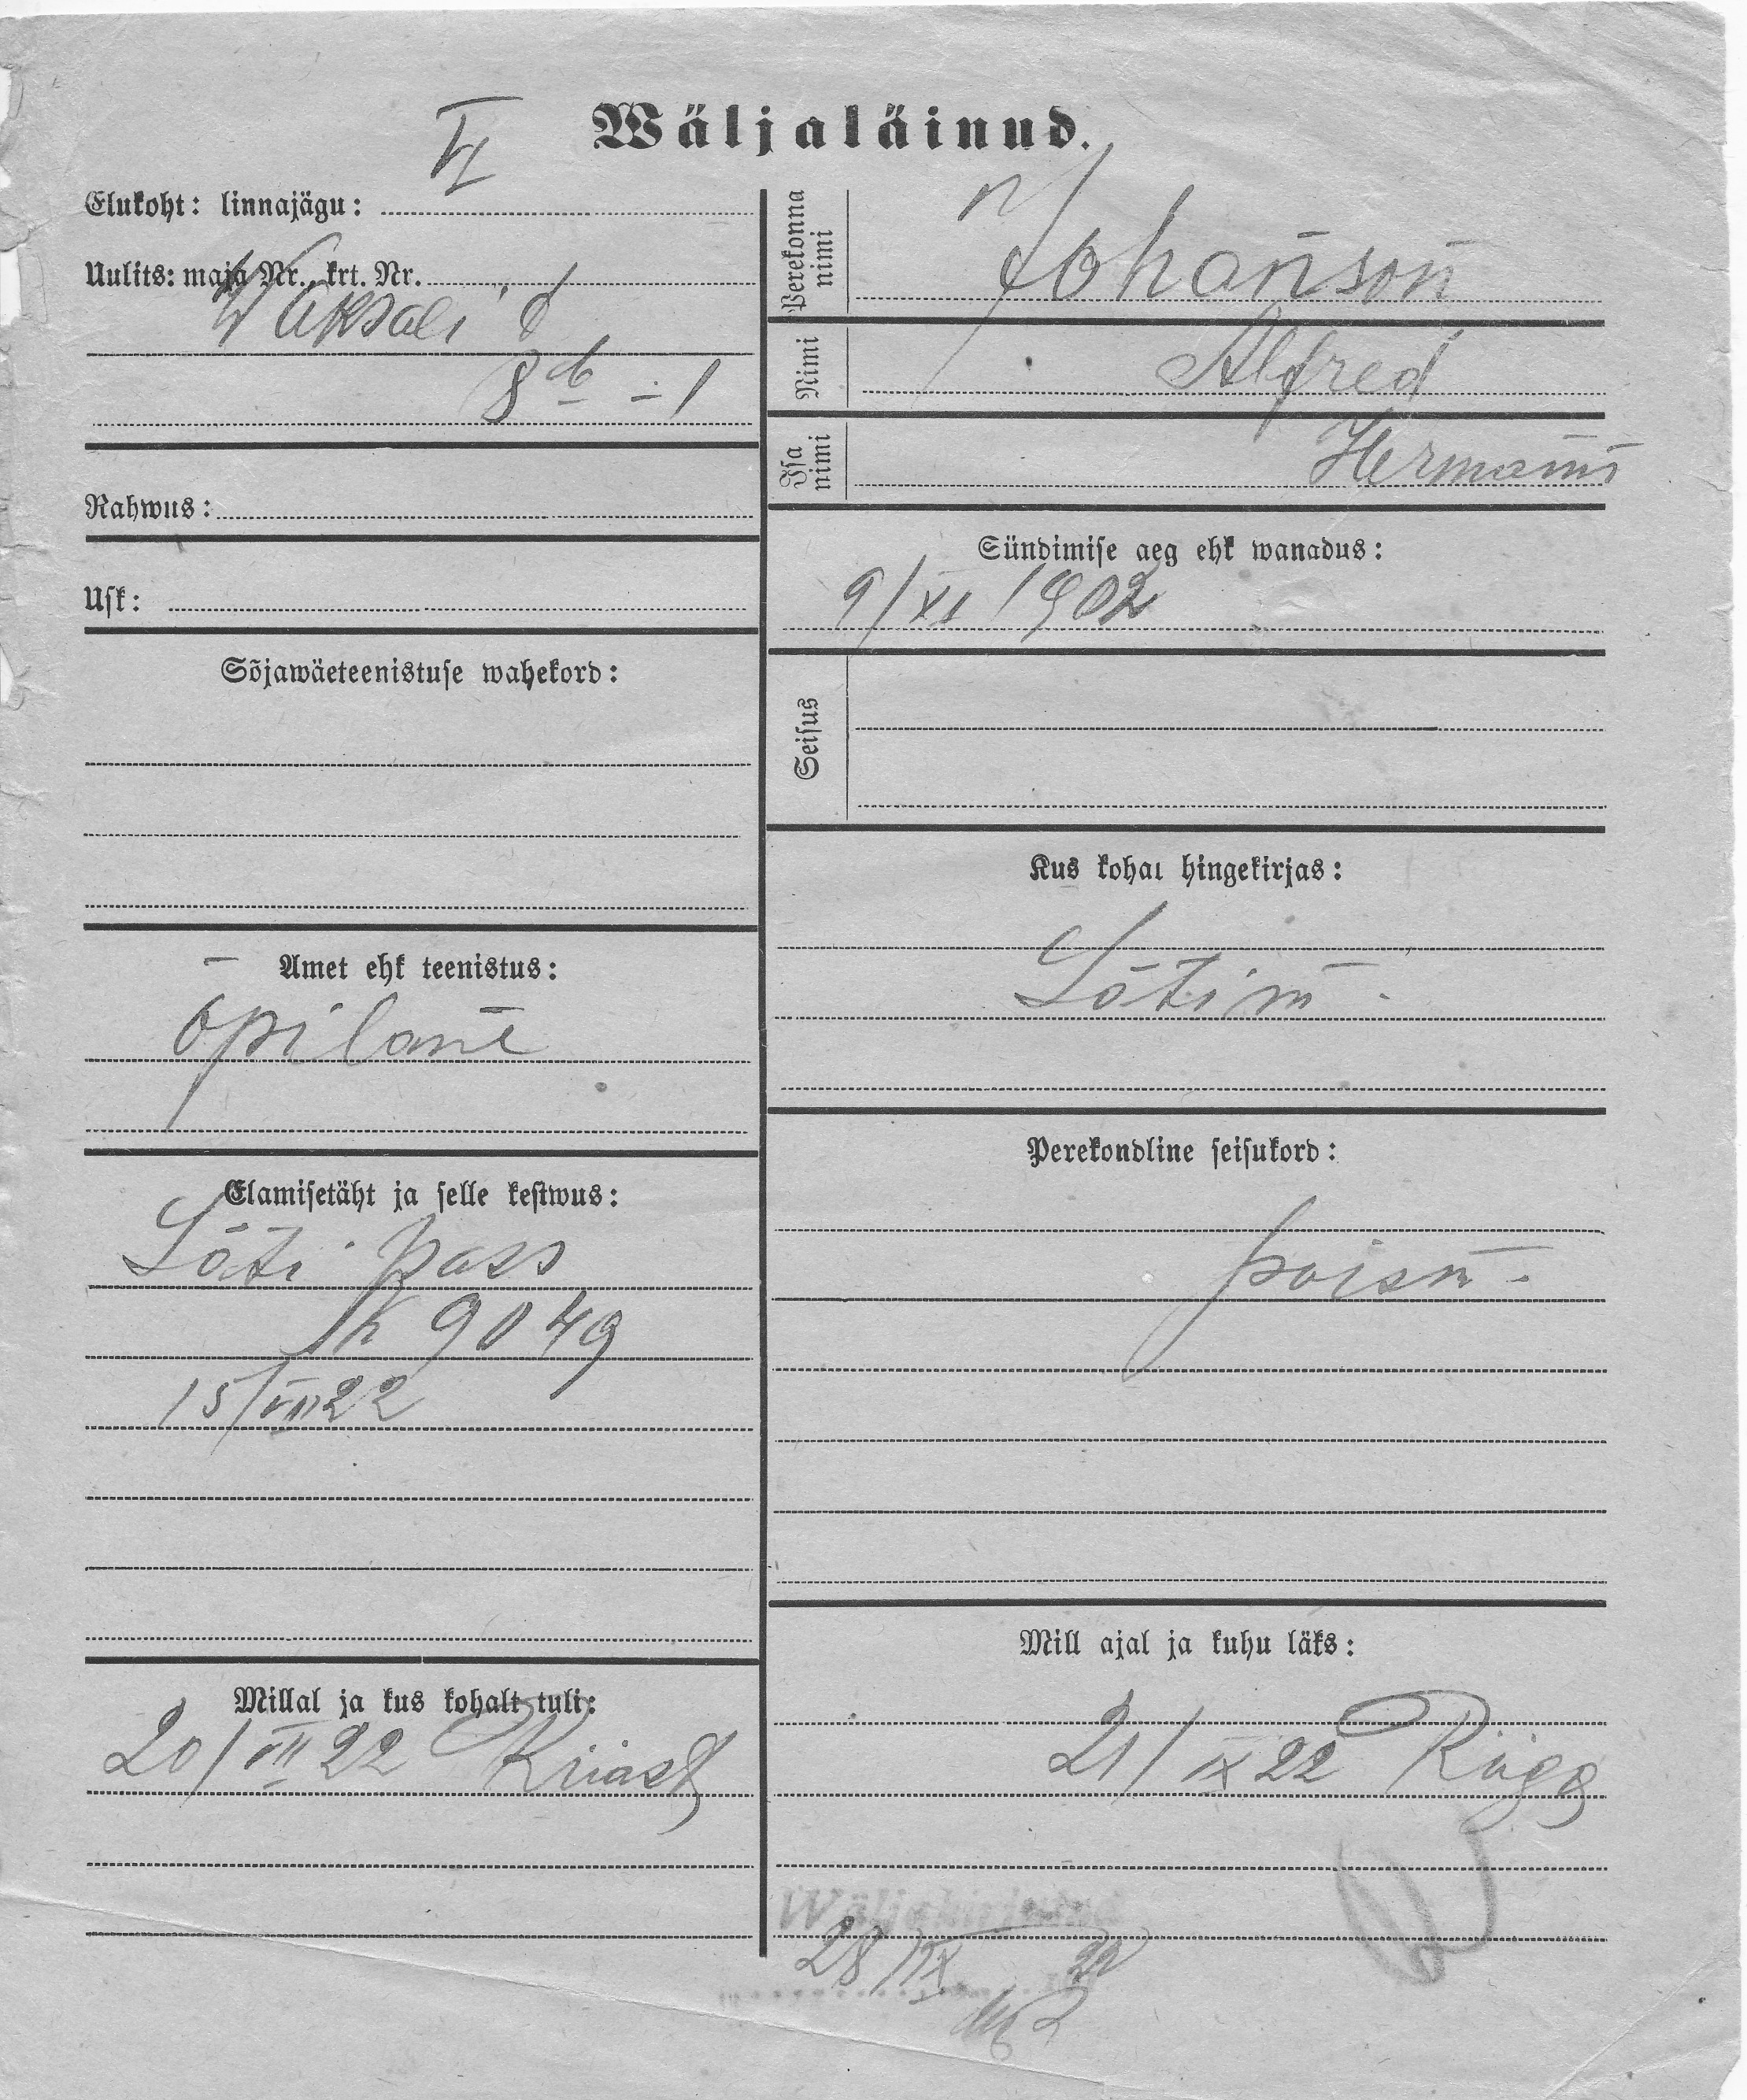 Wäljaläinud.
Elukoht: linnajägu: VI
Uulits: maja Nr. krt. Nr.
Waksali t
8 b - 1
Rahwus:
Usk:
Sõjawäeteenistuse wahekord:
Amet ehk teenistus:
õpilane
Elamisetäht ja selle kestwus:
Läti pass
№ 9049
15/VIII 22
Millal ja kus kohalt tuli:
20/VII 22 Riiast
Perekonna nimi
Johanson
Nimi
Alfred
Isa nimi
Hermanni
Sündimise aeg ehk wanadus:
9/XI 1902
Seisus
Kus kohal hingekirjas:
Läti m.
Perekondline seisukord:
poism.
Mill ajal ja kuhu läks:
21/IX 22 Riiga
Wäljakirjutud
28/IX 22